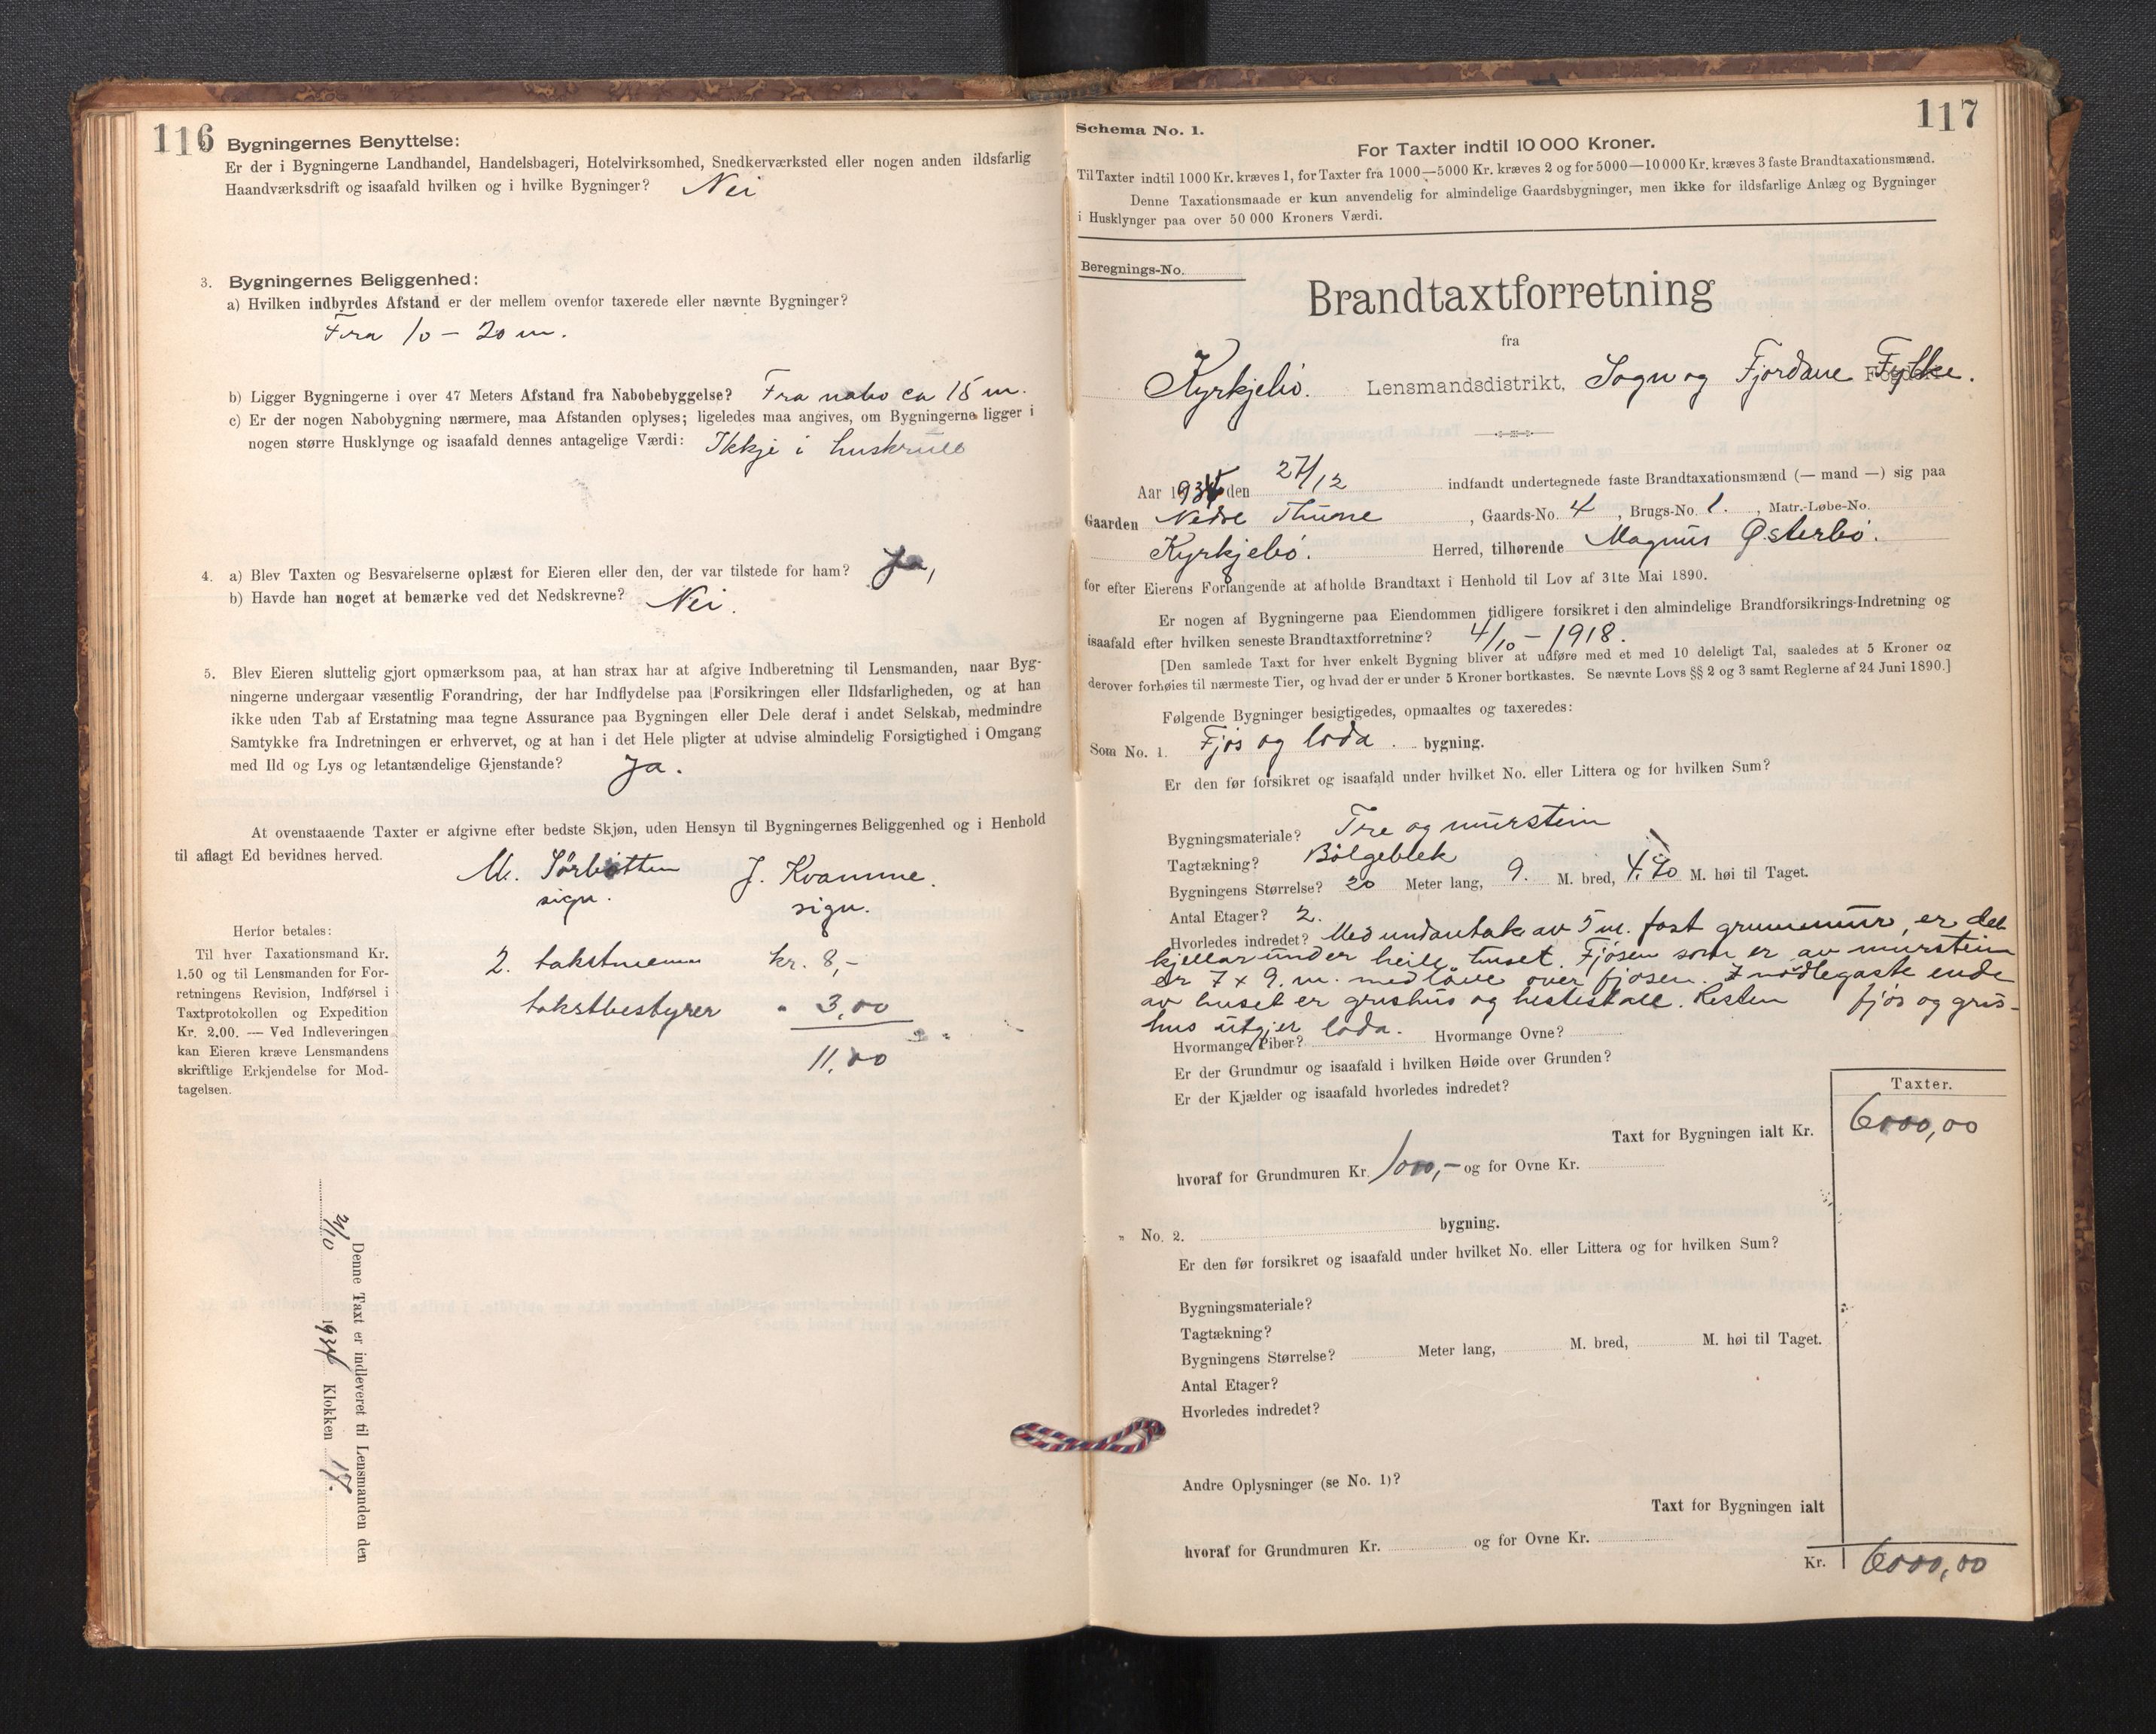 116
Bygningernes Benyttelse:
Er der i Bygningerne Landhandel, Handelsbageri, Hotelvirksomhed, Snedkerværksted eller nogen anden ildsfarlig
Haandværksdrift og isaafald hvilken og i hvilke Bygninger? Nei
3. Bygningernes Beliggenhed:
a) Hvilken indbyrdes Afstand er der mellem ovenfor taxerede eller nævnte Bygninger?
Fra 10 - 20 m.
b) Ligger Bygningerne i over 47 Meters Afstand fra Nabobebyggelse? Fra nabo ca 15 m.
c) Er der nogen Nabobygning nærmere, maa Afstanden oplyses; ligeledes maa angives, om Bygningerne ligger i
nogen større Husklynge og isaafald dennes antagelige Værdi: Ikkje i huskrull
4. a) Blev Taxten og Besvarelserne oplæst for Eieren eller den, der var tilstede for ham? Ja,
b) Havde han noget at bemærke ved det Nedskrevne? Nei.
5. Blev Eieren sluttelig gjort opmærksom paa, at han strax har at afgive Indberetning til Lensmanden, naar Byg-
ningerne undergaar væsentlig Forandring, der har Indflydelse paa Forsikringen eller Ildsfarligheden, og at han
ikke uden Tab af Erstatning maa tegne Assurance paa Bygningen eller Dele deraf i andet Selskab, medmindre
Samtykke fra Indretningen er erhvervet, og at han i det Hele pligter at udvise almindelig Forsigtighed i Omgang
med Ild og Lys og letantændelige Gjenstande? Ja.
At ovenstaaende Taxter er afgivne efter bedste Skjøn, uden Hensyn til Bygningernes Beliggenhed og i Henhold
til aflagt Ed bevidnes herved.
M. Sørbotten J. Kvamme.
sign. sign.
Herfor betales:
Til hver Taxationsmand Kr.
1.50 og til Lensmanden for For-
retningens Revision, Indførsel i
Taxtprotokollen og Expedition
Kr. 2.00. — Ved Indleveringen
kan Eieren kræve Lensmandens
skriftlige Erkjendelse for Mod-
tagelsen.
2. takstmenn kr. 8,-
takstbestyrer " 3,00
11,00
Denne Taxt er indleveret til Lensmanden den
2/10 1934 Klokken 17.
117
Schema No. 1.
For Taxter indtil 10 000 Kroner.
Til Taxter indtil 1000 Kr. kræves 1, for Taxter fra 1000—5000 Kr. kræves 2 og for 5000—10 000 Kr. kræves 3 faste Brandtaxationsmænd.
Denne Taxationsmaade er kun anvendelig for almindelige Gaardsbygninger, men ikke for ildsfarlige Anlæg og Bygninger
i Husklynger paa over 50 000 Kroners Værdi.
Beregnings-No.
Brandtaxtforretning
fra
Kyrkjebø. Lensmandsdistrikt, Sogn og Fjordane Fylke.
Aar 1934 den 27/12 indfandt undertegnede faste Brandtaxationsmænd (— mand —) sig paa
Gaarden Nedre Thune, Gaards-No. 4, Brugs-No. 1., Matr.-Løbe-No.
Kyrkjebø. Herred, tilhørende Magnus Østerbø.
for efter Eierens Forlangende at afholde Brandtaxt i Henhold til Lov af 31te Mai 1890.
Er nogen af Bygningerne paa Eiendommen tidligere forsikret i den almindelige Brandforsikrings-Indretning og
isaafald efter hvilken seneste Brandtaxtforretning? 4/10 - 1918.
[Den samlede Taxt for hver enkelt Bygning bliver at udføre med et med 10 deleligt Tal, saaledes at 5 Kroner og
derover forhøies til nærmeste Tier, og hvad der er under 5 Kroner bortkastes. Se nævnte Lovs §§ 2 og 3 samt Reglerne af 24 Juni 1890.]
Følgende Bygninger besigtigedes, opmaaltes og taxeredes:
Som No. 1. Fjos og løda. bygning.
Er den før forsikret og isaafald under hvilket No. eller Littera og for hvilken Sum?
Bygningsmateriale? Tre og murstein
Tagtækning? Bølgeblek
Bygningens Størrelse? 20 Meter lang, 9. M. bred, 4,40 M. høi til Taget.
Antal Etager? 2.
Hvorledes indredet? Med undantak av 5 m. fast grunnmur, er det
kjellar under heile huset. Fjøsen som er av murstein
er 7 x 9. m. med løve over fjøsen. I nørdlegaste ende
av huset er grishus og hestestall. Resten fjøs og gris-
hus utgjer løda.
Hvormange Piber? Hvormange Ovne?
Er der Grundmur og isaafald i hvilken Høide over Grunden?
Er der Kjælder og isaafald hvorledes indredet?
Taxter.
Taxt for Bygningen ialt Kr. 6000,00
hvoraf for Grundmuren Kr. 1000,- og for Ovne Kr.
" No. 2. bygning.
Er den før forsikret og isaafald under hvilket No. eller Littera og for hvilken Sum?
Bygningsmateriale?
Tagtækning?
Bygningens Størrelse? Meter lang, M. bred, M. høi til Taget.
Antal Etager?
Hvorledes indredet?
Andre Oplysninger (se No. 1)?
Taxt for Bygningen ialt
hvoraf for Grundmuren Kr. og for Ovne Kr.
Kr. 6000,00